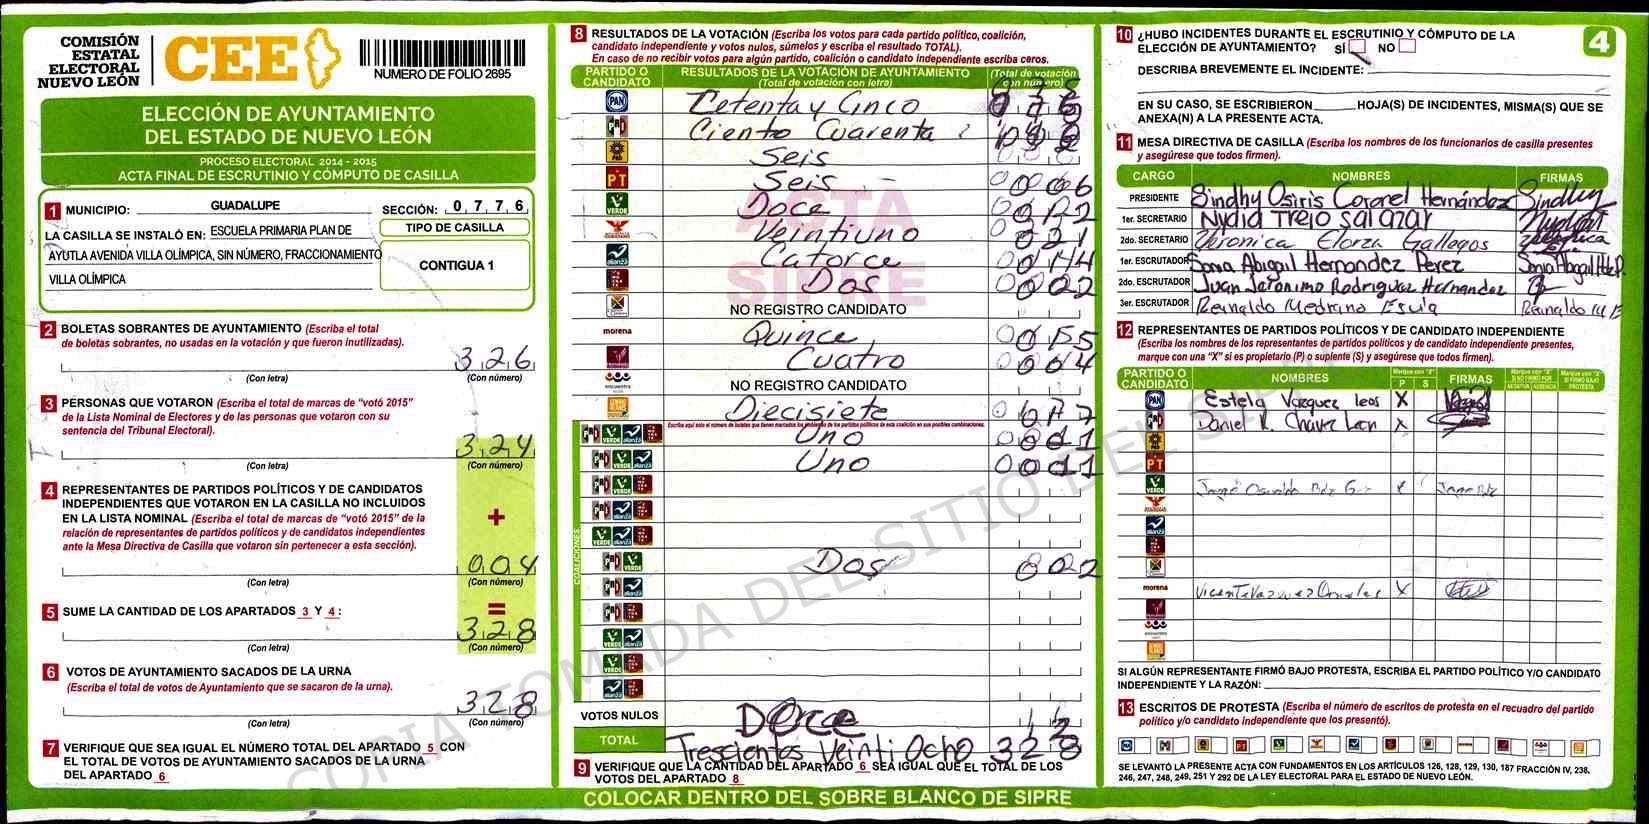 COMISIÓN
ESTATAL
ELECTORAL
NUEVO LEÓN
CEE
NUMERO DE FOLIO 2695
ELECCIÓN DE AYUNTAMIENTO
DEL ESTADO DE NUEVO LEÓN
PROCESO ELECTORAL 2014 - 2015
ACTA FINAL DE ESCRUTINIO Y CÓMPUTO DE CASILLA
1 MUNICIPIO: GUADALUPE SECCIÓN: 0 7 7 6
LA CASILLA SE INSTALÓ EN: ESCUELA PRIMARIA PLAN DE
AYUTLA AVENIDA VILLA OLÍMPICA, SIN NÚMERO, FRACCIONAMIENTO
VILLA OLÍMPICA
TIPO DE CASILLA
CONTIGUA 1
2 BOLETAS SOBRANTES DE AYUNTAMIENTO (Escriba el total
de boletas sobrantes, no usadas en la votación y que fueron inutilizadas).
326
(Con letra) (Con número)
3 PERSONAS QUE VOTARON (Escriba el total de marcas de "votó 2015"
de la Lista Nominal de Electores y de las personas que votaron con su
sentencia del Tribunal Electoral).
324
(Con letra) (Con número)
4 REPRESENTANTES DE PARTIDOS POLÍTICOS Y DE CANDIDATOS
INDEPENDIENTES QUE VOTARON EN LA CASILLA NO INCLUIDOS
EN LA LISTA NOMINAL (Escriba el total de marcas de "votó 2015" de la
relación de representantes de partidos políticos y de candidatos independientes
ante la Mesa Directiva de Casilla que votaron sin pertenecer a esta sección).
+
004
(Con letra) (Con número)
5 SUME LA CANTIDAD DE LOS APARTADOS 3 Y 4 :
=
328
(Con letra) (Con número)
6 VOTOS DE AYUNTAMIENTO SACADOS DE LA URNA
(Escriba el total de votos de Ayuntamiento que se sacaron de la urna).
328
(Con letra) (Con número)
7 VERIFIQUE QUE SEA IGUAL EL NÚMERO TOTAL DEL APARTADO 5 CON
EL TOTAL DE VOTOS DE AYUNTAMIENTO SACADOS DE LA URNA
DEL APARTADO 6
8 RESULTADOS DE LA VOTACIÓN (Escriba los votos para cada partido político, coalición,
candidato independiente y votos nulos, súmelos y escriba el resultado TOTAL).
En caso de no recibir votos para algún partido, coalición o candidato independiente escriba ceros.
PARTIDO O CANDIDATO
RESULTADOS DE LA VOTACIÓN DE AYUNTAMIENTO
(Total de votación con letra)
(Total de votación con número)
PAN Cetenta y Cinco
PRD Ciento Cuarenta
PRD Seis
PT Seis 006
VERDE Doce 012
Veintiuno 021
alianza Catorce 014
Dos 002
NO REGISTRO CANDIDATO
morena Quince 015
Cuatro 004
encuentro NO REGISTRO CANDIDATO
Diecisiete 017
Escriba aquí solo el número de boletas que tienen marcados los emblemas de los partidos políticos de esta coalición en sus posibles combinaciones.
COALICIONES
VERDE alianza Uno 001
VERDE alianza Uno 001
VERDE
alianza
VERDE alianza
VERDE Dos 002
alianza
VERDE alianza
VERDE
alianza
VOTOS NULOS Doce 12
TOTAL Trescientos Veinti Ocho 328
9 VERIFIQUE QUE LA CANTIDAD DEL APARTADO 6 SEA IGUAL QUE EL TOTAL DE LOS
VOTOS DEL APARTADO 8
COLOCAR DENTRO DEL SOBRE BLANCO DE SIPRE
ACTA
SIPRE
COPIA TOMADA DEL SITIO DEL SIPRE
10 ¿HUBO INCIDENTES DURANTE EL ESCRUTINIO Y CÓMPUTO DE LA
ELECCIÓN DE AYUNTAMIENTO? SÍ NO
4
DESCRIBA BREVEMENTE EL INCIDENTE:
EN SU CASO, SE ESCRIBIERON HOJA(S) DE INCIDENTES, MISMA(S) QUE SE
ANEXA(N) A LA PRESENTE ACTA.
11 MESA DIRECTIVA DE CASILLA (Escriba los nombres de los funcionarios de casilla presentes
y asegúrese que todos firmen).
CARGO NOMBRES FIRMAS
PRESIDENTE Sindhy Osiris Coronel Hernández Sindhy
1er. SECRETARIO Nydia Trejo Salazar
2do. SECRETARIO Veronica Elorza Gallegos
1er. ESCRUTADOR Sonia Abigail Hernandez Perez Sonia Abigail Hdz P.
2do. ESCRUTADOR Juan Jeronimo Rodriguez Hernandez
3er. ESCRUTADOR Reinaldo Medrano Reinaldo M E
12 REPRESENTANTES DE PARTIDOS POLÍTICOS Y DE CANDIDATO INDEPENDIENTE
(Escriba los nombres de los representantes de partidos políticos y de candidato independiente presentes,
marque con una "X" si es propietario (P) o suplente (S) y asegúrese que todos firmen).
PARTIDO O CANDIDATO NOMBRES Marque con "X" P S FIRMAS
PAN Estela Vazquez Leos X
Daniel R. Chavez Leon X
PRD
PT
VERDE Jorge Osvaldo X
alianza
morena Vicente Vazquez Ornelas X
encuentro
SI ALGÚN REPRESENTANTE FIRMÓ BAJO PROTESTA, ESCRIBA EL PARTIDO POLÍTICO Y/O CANDIDATO
INDEPENDIENTE Y LA RAZÓN:
13 ESCRITOS DE PROTESTA (Escriba el número de escritos de protesta en el recuadro del partido
político y/o candidato independiente que los presentó).
SE LEVANTÓ LA PRESENTE ACTA CON FUNDAMENTOS EN LOS ARTÍCULOS 126, 128, 129, 130, 187 FRACCIÓN IV, 238,
246, 247, 248, 249, 251 Y 292 DE LA LEY ELECTORAL PARA EL ESTADO DE NUEVO LEÓN.